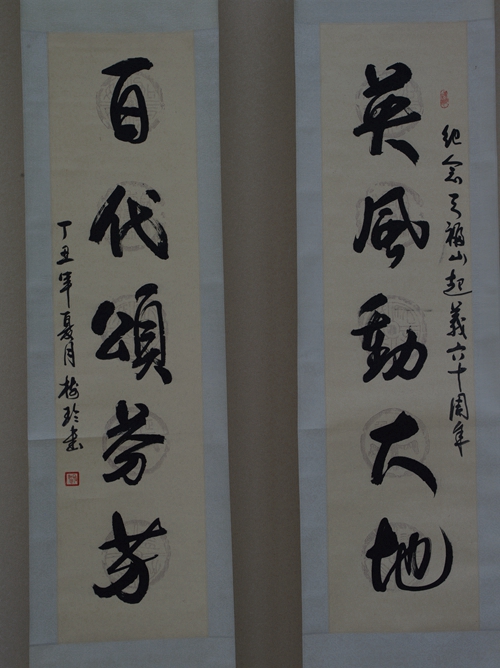 英風動大地
紀念天福山起義六十周年
百代頌芬芳
丁丑年夏月